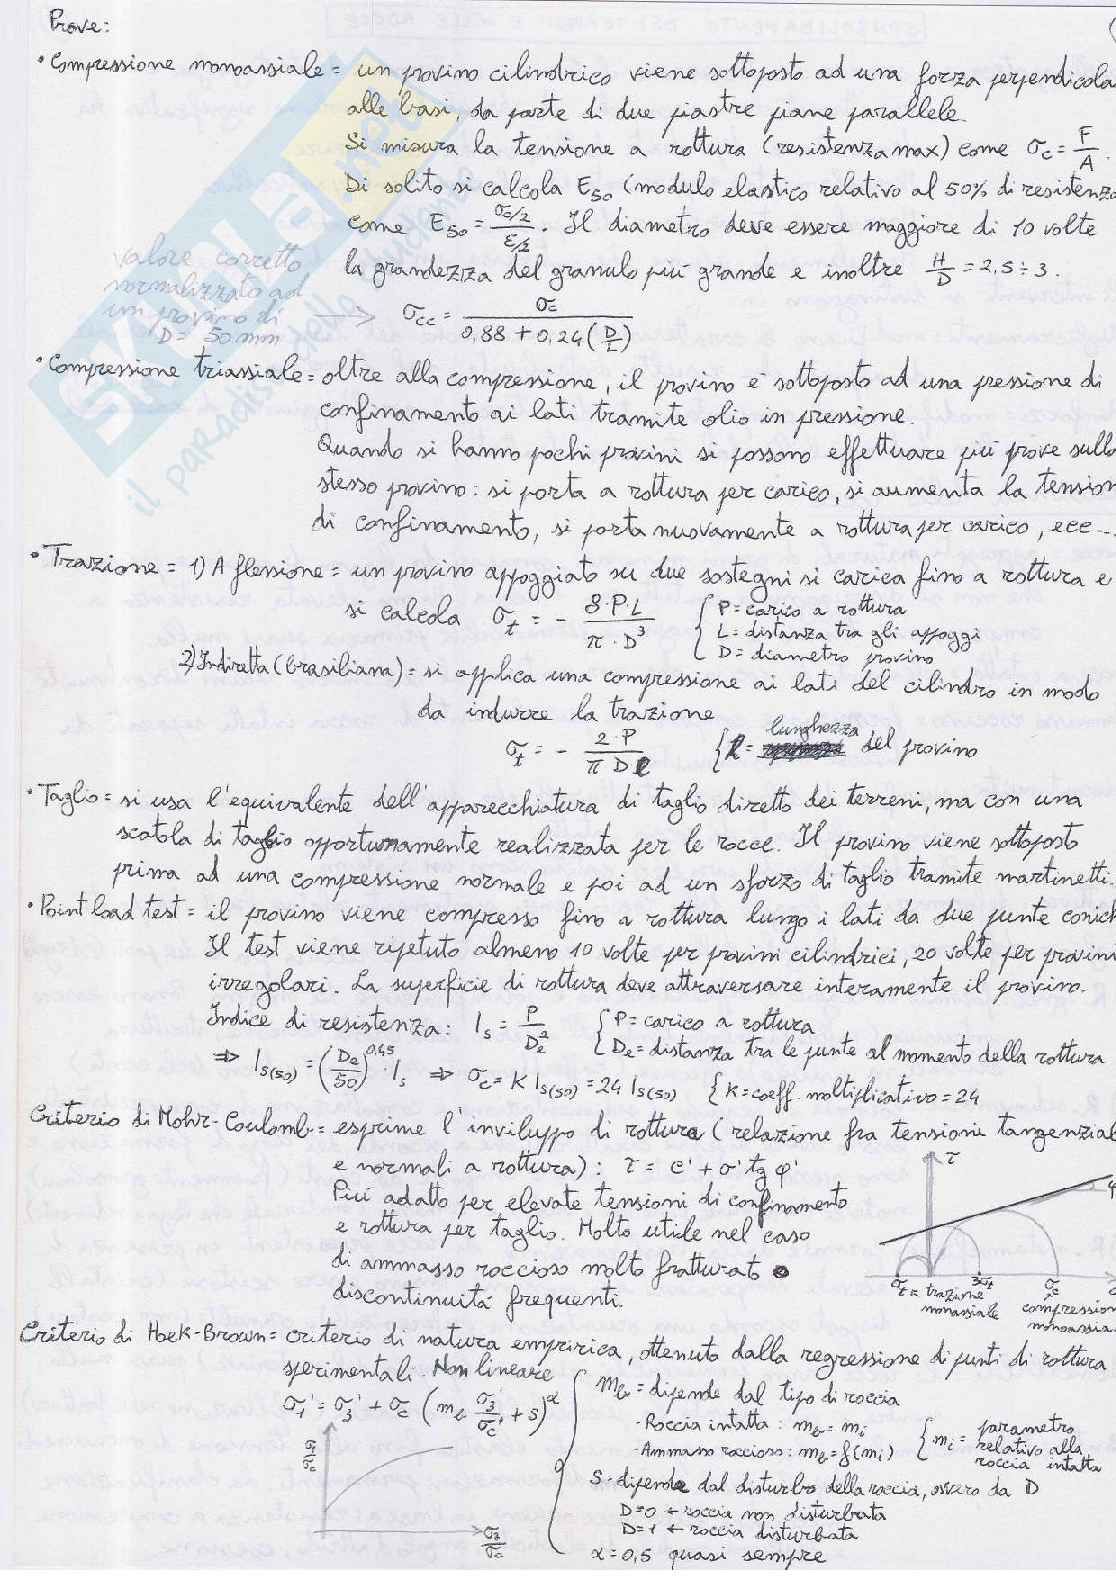 Prove:
• Compressione monoassiale = un provino cilindrico viene sottoposto ad una forza perpendicola
alle basi, da parte di due piastre piane parallele.
Si misura la tensione a rottura (resistenza max) come σc = F/A.
Di solito si calcola E50 (modulo elastico relativo al 50% di resistenza
come E50 = (σc/2)/(ε/2). Il diametro deve essere maggiore di 10 volte
la grandezza del granulo più grande e inoltre H/D = 2,5 ÷ 3.
valore corretto
normalizzato ad
un provino di
D = 50 mm
→ σcc = σc / (0,88 + 0,24 (D/L))
• Compressione triassiale = oltre alla compressione, il provino è sottoposto ad una pressione di
confinamento ai lati tramite olio in pressione.
Quando si hanno pochi provini si possono effettuare più prove sullo
stesso provino: si porta a rottura per carico, si aumenta la tension
di confinamento, si porta nuovamente a rottura per carico, ecc...
• Trazione = 1) A flessione = un provino appoggiato su due sostegni si carica fino a rottura e
si calcola σt = - 8·P·L / π·D³ { P = carico a rottura
L = distanza tra gli appoggi
D = diametro provino
2) Indiretta (brasiliana) = si applica una compressione ai lati del cilindro in modo
da indurre la trazione
σt = - 2·P / π D l { l = lunghezza del provino
• Taglio = si usa l'equivalente dell'apparecchiatura di taglio diretto dei terreni, ma con una
scatola di taglio opportunamente realizzata per le rocce. Il provino viene sottoposto
prima ad una compressione normale e poi ad un sforzo di taglio tramite martinetti.
• Point load test = il provino viene compresso fino a rottura lungo i lati da due punte conich
Il test viene ripetuto almeno 10 volte per provini cilindrici, 20 volte per provini
irregolari. La superficie di rottura deve attraversare interamente il provino.
Indice di resistenza: Is = P/De² { P = carico a rottura
De = distanza tra le punte al momento della rottura
⇒ Is(50) = (De/50)^0,45 · Is ⇒ σc = K Is(50) = 24 Is(50) { K = coeff. moltiplicativo = 24
Criterio di Mohr-Coulomb = esprime l'inviluppo di rottura (relazione fra tensioni tangenzial
e normali a rottura): τ = c' + σ' tg φ'
Più adatto per elevate tensioni di confinamento
e rottura per taglio. Molto utile nel caso
di ammasso roccioso molto fratturato o
discontinuità frequenti.
τ
σt = trazione
monoassiale
3σt
σc
compression
monoassia
Criterio di Hoek-Brown = criterio di natura empirica, ottenuto dalla regressione di punti di rottura
sperimentali. Non lineare
σ1' = σ3' + σc (mb σ3'/σc + s)^α
{ mb = dipende dal tipo di roccia
- Roccia intatta: mb = mi
- Ammasso roccioso: mb = f(mi)
{ mi = parametro
relativo alla
roccia intatta
S = dipende dal disturbo della roccia, ovvero da D
D=0 ← roccia non disturbata
D=1 ← roccia disturbata
α = 0,5 quasi sempre
σ1/σc
σ3/σc
SKUOLA.net
il paradiso dello studente